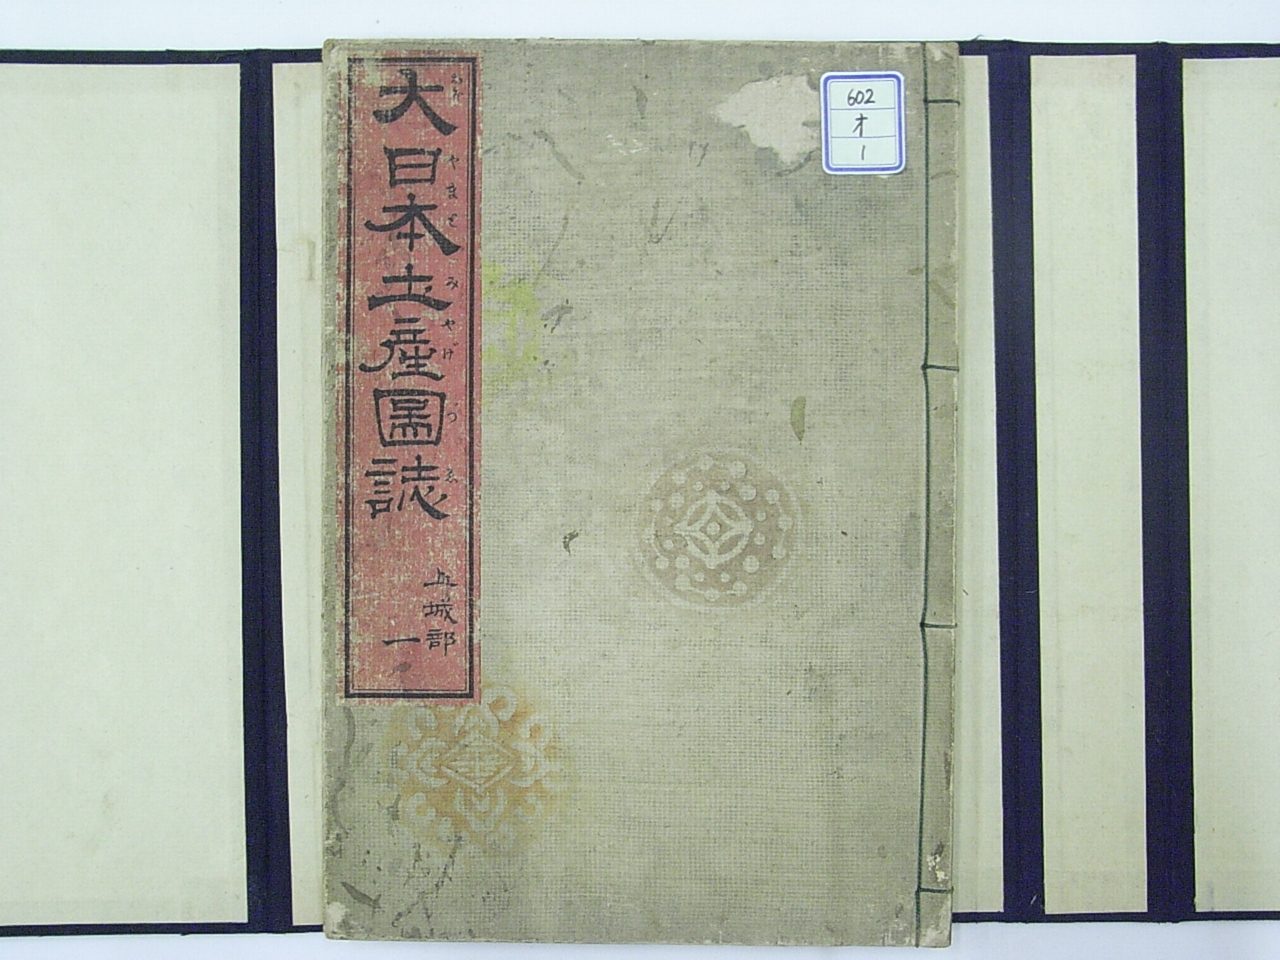 大日本土産圖誌
おほ やまと みやげ づ ゑ
兵城部
一
602
オ
1